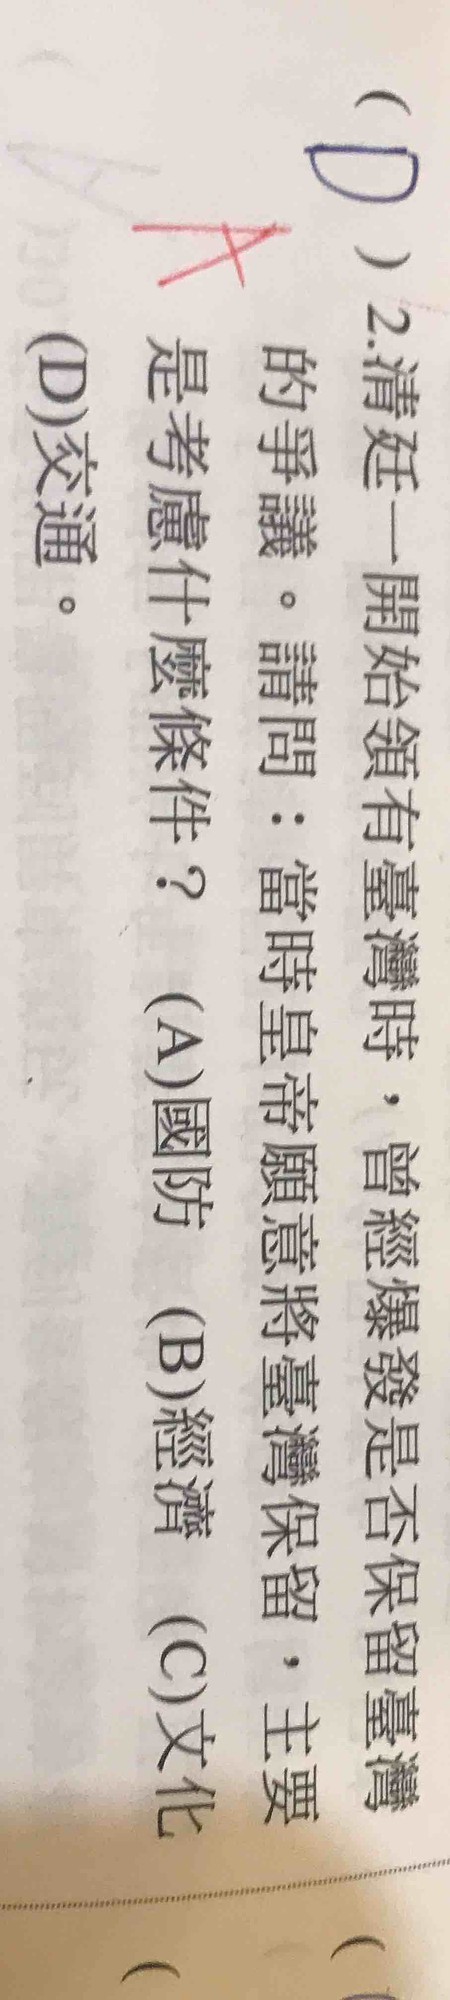 ( D ) 2.清廷一開始領有臺灣時，曾經爆發是否保留臺灣
A
的爭議。請問：當時皇帝願意將臺灣保留，主要
是考慮什麼條件？ (A)國防 (B)經濟 (C)文化
(D)交通。